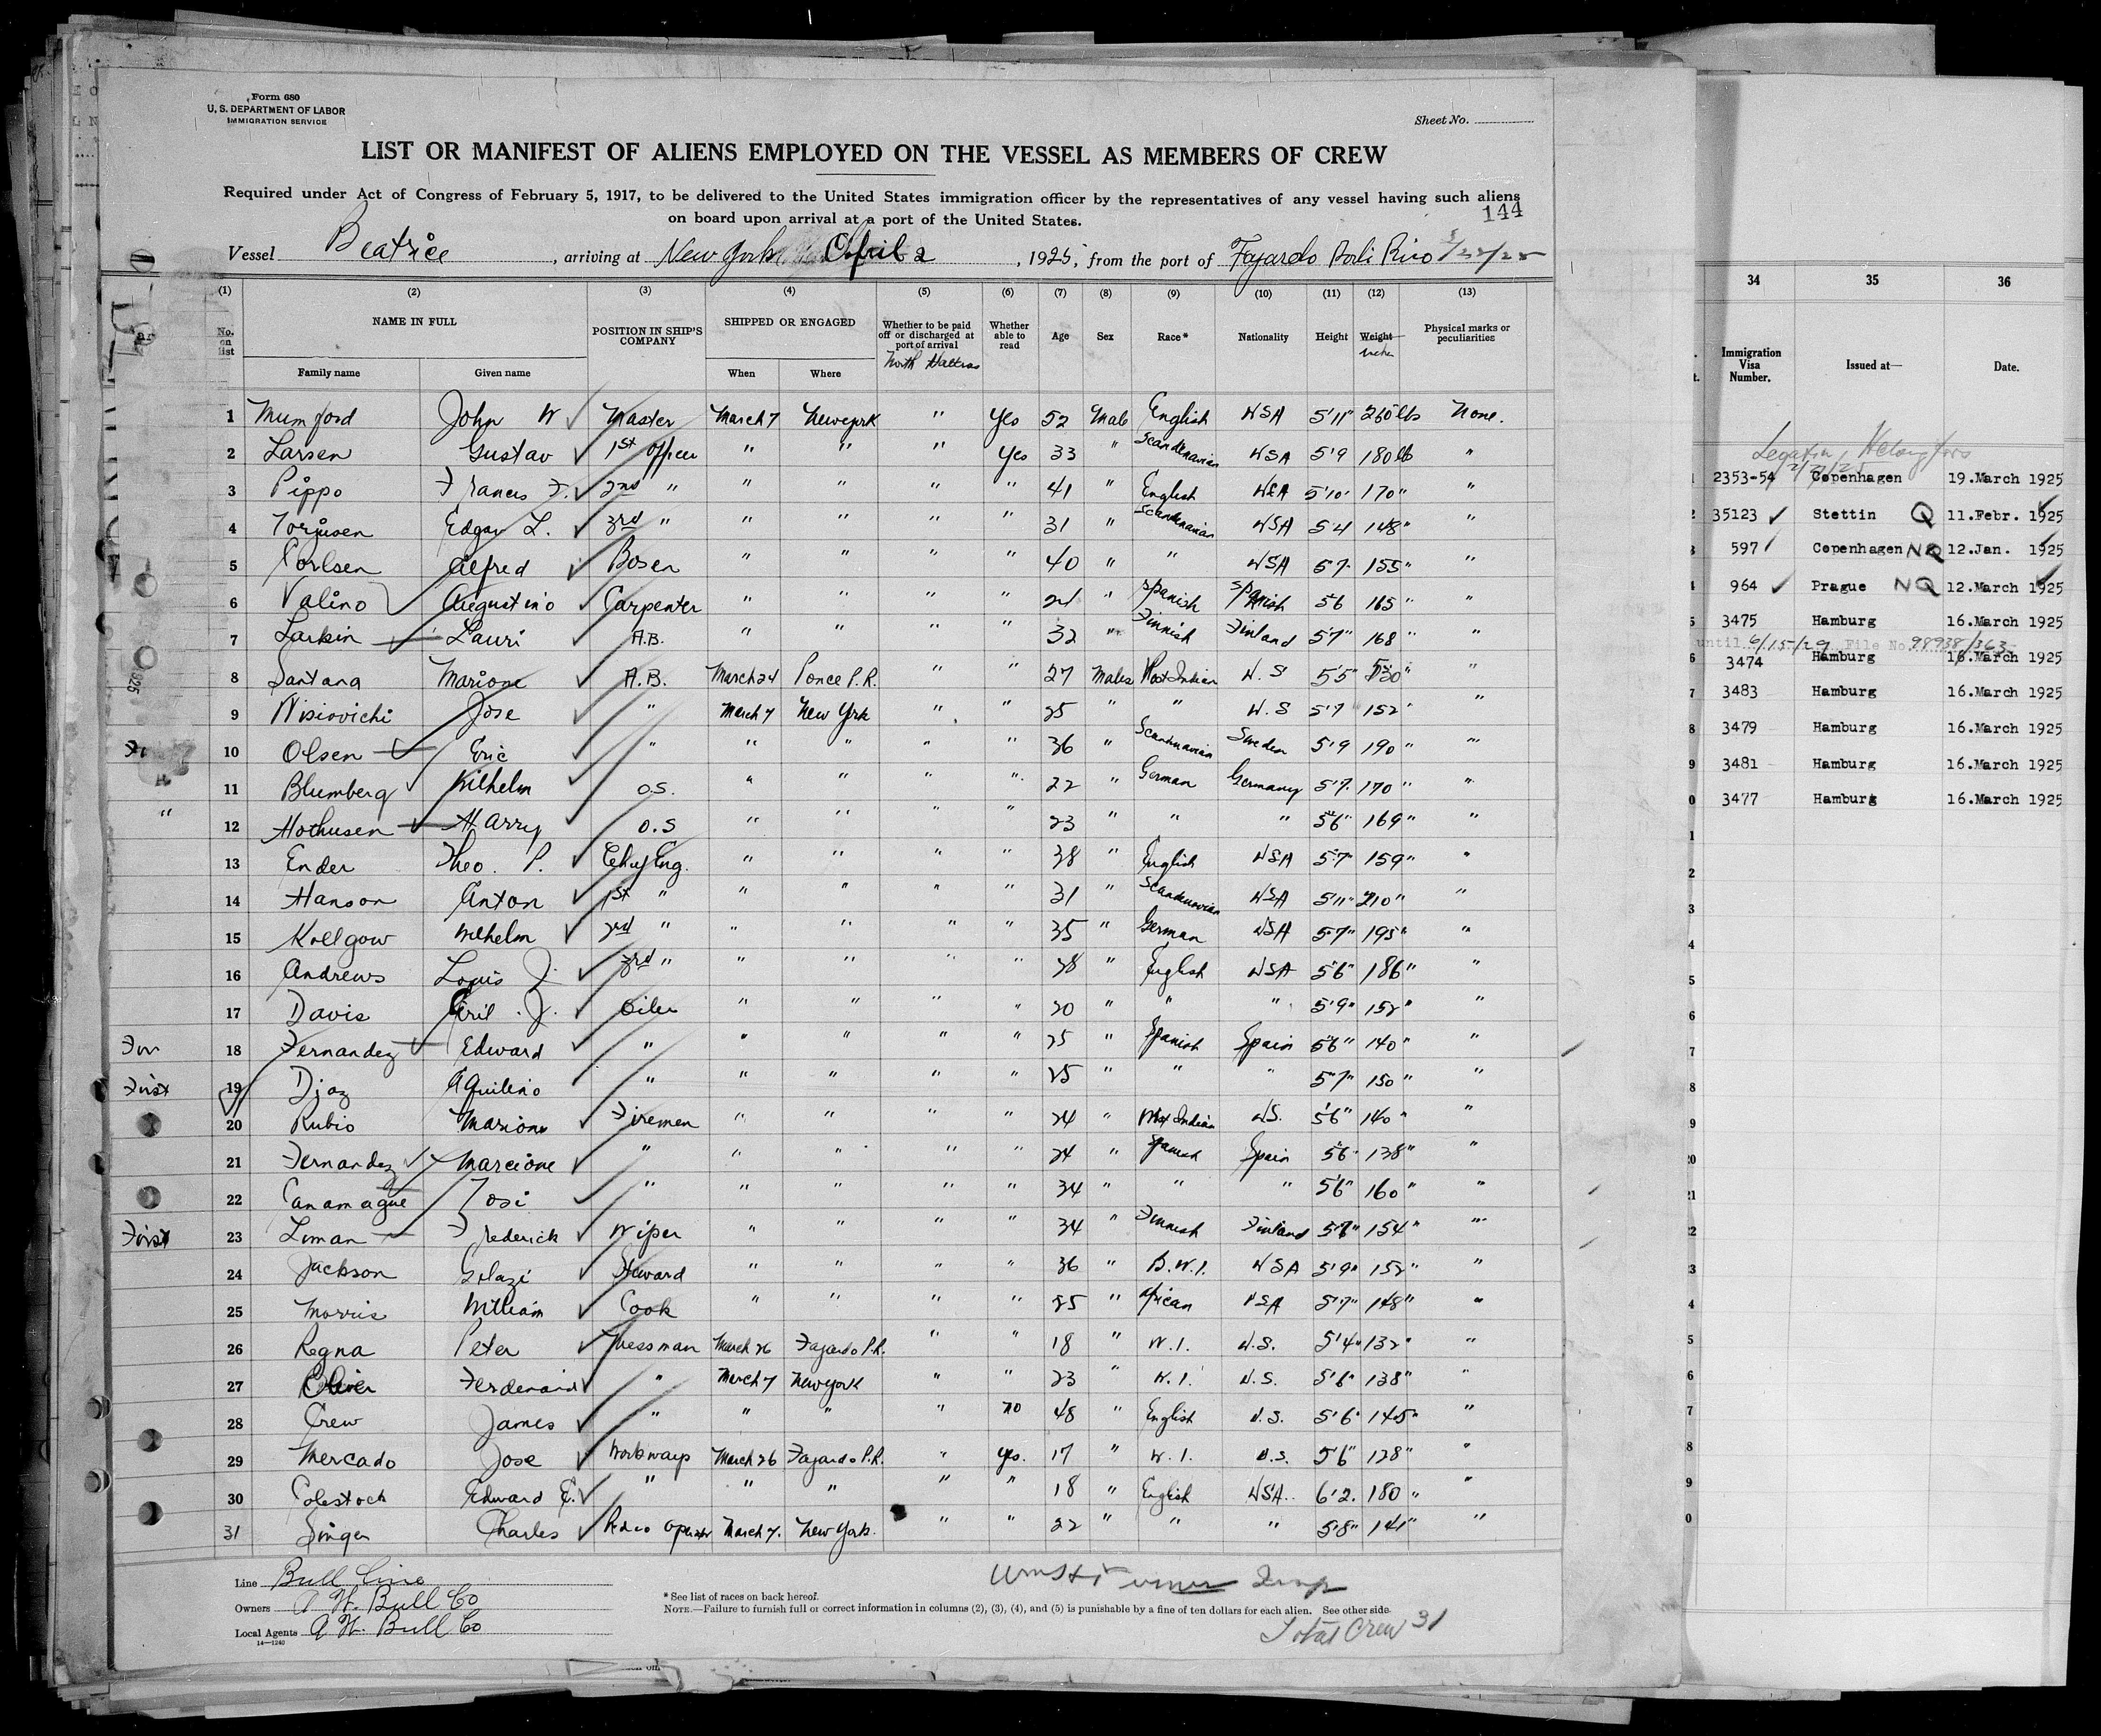 Form 680
U. S. DEPARTMENT OF LABOR
IMMIGRATION SERVICE
Sheet No.
LIST OR MANIFEST OF ALIENS EMPLOYED ON THE VESSEL AS MEMBERS OF CREW
Required under Act of Congress of February 5, 1917, to be delivered to the United States immigration officer by the representatives of any vessel having such aliens
on board upon arrival at a port of the United States.
144
Vessel Beatrice, arriving at New York April 2, 1925, from the port of Fajardo Porti Rico
(1) (2) (3) (4) (5) (6) (7) (8) (9) (10) (11) (12) (13)
No. on list NAME IN FULL POSITION IN SHIP'S COMPANY SHIPPED OR ENGAGED Whether to be paid off or discharged at port of arrival Whether able to read Age Sex Race* Nationality Height Weight Physical marks or peculiarities
Family name Given name When Where
1 Mumford John W Master March 7 Newyork " Yes 52 Male English USA 5'11" 260 lbs None.
2 Larsen Gustav 1st Officer " " " Yes 33 " Scandenavian USA 5'9 180 lb "
3 Pippo Francis F. 2nd " " " " " 41 " English USA 5'10" 170 " "
4 Edgar L. 3rd " " " " " 31 " Scandenavian USA 5'4 148 " "
5 Alfred Bosen " " " " 40 " " USA 5'7 155 " "
6 Valino Augustino Carpenter " " " " " Spanish Spanish 5'6 165 " "
7 Larkin Lauri A.B. " " " " 32 " Finnish Finland 5'7" 168 " "
8 Santana Marione A.B. March 24 Ponce P.R. " " 27 Males West Indian U.S 5'5" "
9 Jose " March 7 New York " " 25 " " U.S 5'7 152 " "
10 Olsen Eric " " " " " 36 " Scandenavian Sweden 5'9 190 " "
11 Blumberg Wilhelm O.S. " " " " 22 " German Germany 5'7. 170 " "
12 Hothusen Harry O.S " " " " 23 " " " 5'6" 169 " "
13 Ender Theo. P. Chief Eng. " " " " 38 " English USA 5'7" 159 " "
14 Hanson Anton 1st " " " " " 31 " Scandenavian USA 5'11" 210 " "
15 Kollgow Wilhelm 2nd " " " " " 35 " German USA 5'7" 195 " "
16 Andrews Louis J. 3rd " " " " " 38 " English USA 5'6" 186 " "
17 Davis J. Oiler " " " " 20 " " " 5'9" 152 " "
18 Fernandez Edward " " " " " 25 " Spanish Spain 5'6" 140 " "
First 19 Diaz Aquilino " " " " " 25 " " " 5'7" 150 " "
20 Rubio Marione Firemen " " " " 24 " West Indian US. 5'6" 140 " "
21 Fernandez Marcione " " " " " 24 " Spanish Spain 5'6 138 " "
22 Canamague Josi " " " " " 34 " " " 5'6" 160 " "
First 23 Liman Frederick Wiper " " " " 34 " Finnish Finland 154 " "
24 Jackson Steward " " " " 36 " B.W.I. USA 5'9" 152 " "
25 Morris William Cook " " " " 25 " African USA 5'7" 148 " "
26 Regna Peter Messman March 26 Fajardo P.R. " " 18 " W.I. U.S. 5'4" 132 " "
27 Oliver Ferdenand " March 7 Newyork " " 23 " W.I. U.S. 5'6" 138 " "
28 Crew James " " " " no 48 " English U.S. 5'6" 145 " "
29 Mercado Jose Workways March 26 Fajardo P.R. " yes. 17 " W.I. U.S. 5'6" 138 " "
30 Colestock Edward E. " " " " " 18 " English USA. 6'2. 180 " "
31 Singer Charles Radio Operator March 7. New York. " " 22 " " " 5'8" 141 " "
Line Bull Line
Owners A H. Bull Co
Local Agents A H. Bull Co
14—1240
* See list of races on back hereof.
NOTE.—Failure to furnish full or correct information in columns (2), (3), (4), and (5) is punishable by a fine of ten dollars for each alien. See other side.
Total Crew 31
34 35 36
Immigration Visa Number. Issued at— Date.
2353-54 Copenhagen 19.March 1925
35123 Stettin Q 11.Febr. 1925
597 Copenhagen NQ 12.Jan. 1925
964 Prague NQ 12.March 1925
3475 Hamburg 16.March 1925
until 6/15/29 File No. 98938/363
3474 Hamburg 16.March 1925
3483 Hamburg 16.March 1925
3479 Hamburg 16.March 1925
3481 Hamburg 16.March 1925
3477 Hamburg 16.March 1925